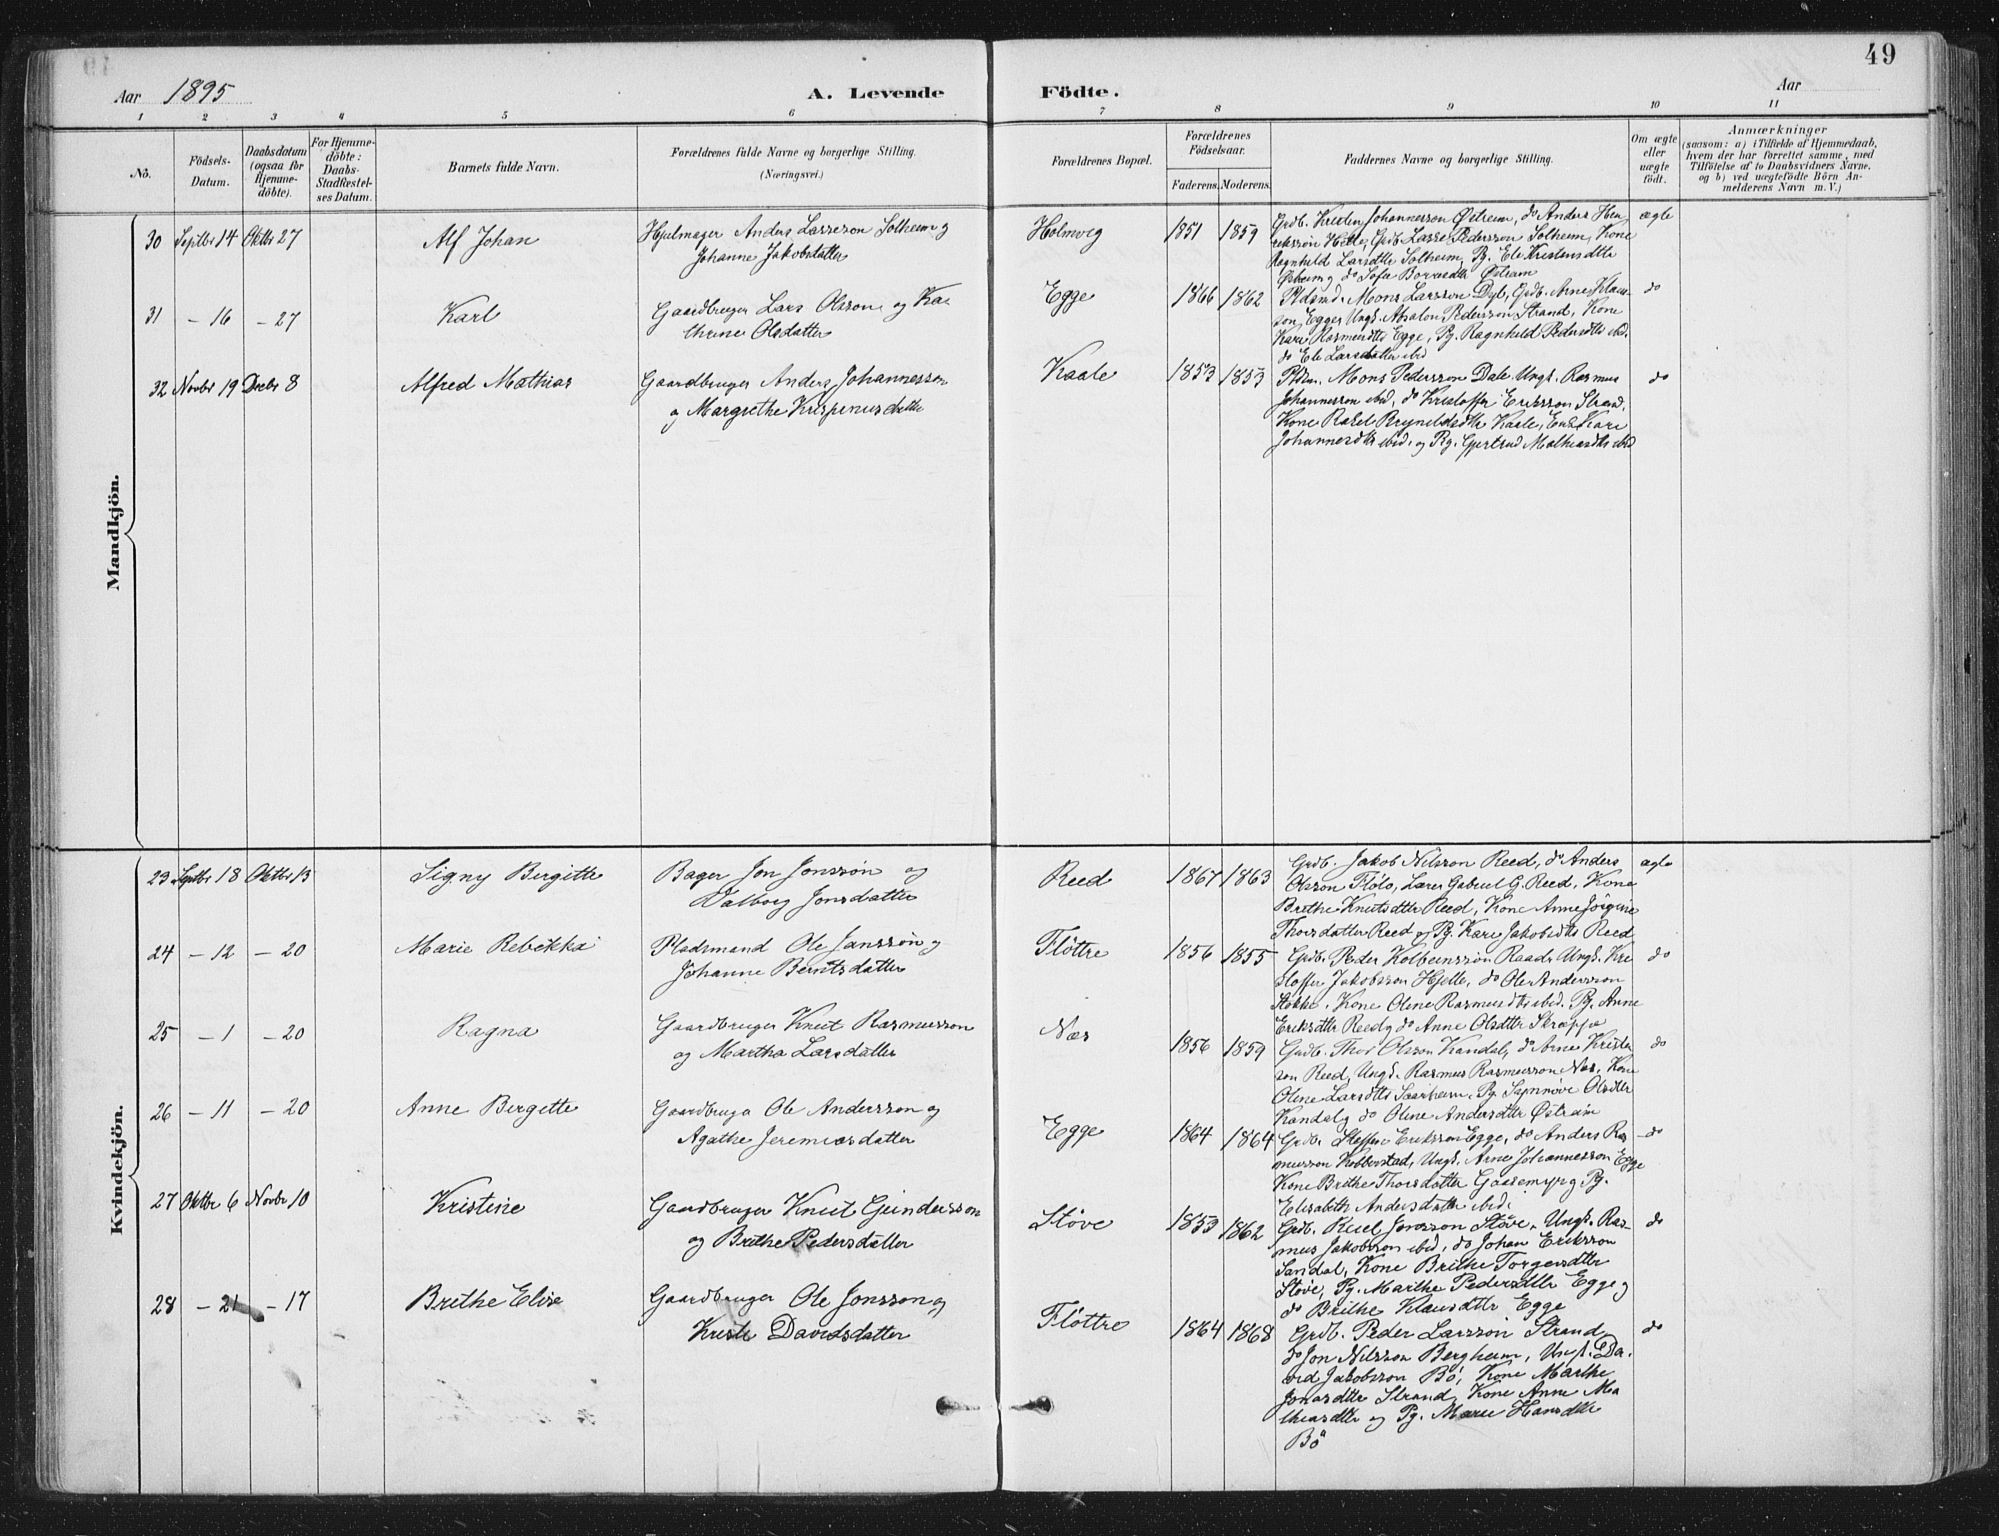 49
Aar 1895
A. Levende Födte.
Aar
1 2 3 4 5 6 7 8 9 10 11
No.
Födsels-
Datum.
Daabsdatum
(ogsaa for
Hjemme-
döbte).
For Hjemme-
döbte:
Daabs-
Stadfæstel-
ses Datum.
Barnets fulde Navn.
Forældrenes fulde Navne og borgerlige Stilling.
(Næringsvei.)
Forældrenes Bopæl.
Forældrenes
Födselsaar.
Faderens. Moderens.
Faddernes Navne og borgerlige Stilling.
Om ægte
eller
uægte
födt.
Anmærkninger
(saasom: a) i Tilfælde af Hjemmedaab,
hvem der har forrettet samme, med
Tilföielse af to Daabsvidners Navne,
og b) ved uægtefödte Börn An-
melderens Navn m. V.)
Mandkjön.
30 Septbr 14 Oktbr 27
Alf Johan
Hjulmager Anders Lassesson Solheim og
Johanne Jakobsdatter
Holmvig
1851 1859
Grdb. Kristen Johannesson Østrem, do Anders Hen
rekssøn Hetle, Grdb. Lasse Pedersson Solheim, Kone
Ragnhild Larsdtr Solheim, Pg. Eli Kristensdtr
Østrem og do Sofie Østrem
ægte
31 - 16 - 27
Karl
Gaardbruger Lars Olsson og Ka
thrine Olsdatter
Egge
1866 1862
Pldsmd. Mons Larsson Dyb, Grdb. Arne Klaus-
son Egge, Ungk. Absalon Pedersson Strand, Kone
Kari Rasmusdtr Egge, Pg. Ragnhild Pedersdtr ibid.
do Eli Larsdatter ibid
do
32 Novbr 19 Decbr 8
Alfred Mathias
Gaardbruger Anders Johannesson
og Margrethe Krispinusdatter
Kaale
1853 1853
Pldsm. Mons Pedersson Dale, Ungk. Rasmus
Johannesson ibid, do Kristoffer Eriksson Strand,
Kone Rakel Brynildsdtr Kaale, Enke Kari
Johannesdtr ibid. og Pg. Gjertrud Mathiasdtr ibid
do
Kvindekjön.
23 Septbr 18 Oktbr 13
Signy Bergitte
Bager Jon Jonssøn og
Valborg Jonsdatter
Reed
1867 1863
Grdb. Jakob Nilsson Reed, do Anders
Olsson Fløtø, Lærer Gabriel G. Reed, Kone
Brithe Knutsdtr Reed, Kone Anne Jørgine
Thorsdatter Reed og Pg. Kari Jakobsdtr Reed
ægte
24 - 12 - 20
Marie Rebekka
Pladsmand Ole Jansson og
Johanne Berntsdatter
Fløttre
1856 1855
Grdb. Peder Kolbeinssøn Raad, Ungk. Kri
stoffer Jakobsson Hjelle, do Ole Andersson
Støkke, Kone Oline Rasmusdtr ibid. Pg. Anne
Eriksdtr Reed og do Anne Olsdtr Skreppa
do
25 - 1 - 20
Ragna
Gaardbruger Knut Rasmusson
og Martha Larsdatter
Næs
1856 1859
Grdb. Thor Olsson Kandal, do Arne Kristen
son Reed, Ungk. Rasmus Rasmusson Næs, Kone
Oline Larsdtr Saarheim, Pg. Synnøve Olsdtr
Kandal og do Oline Andersdtr Østrem
do
26 - 11 - 20
Anne Bergitte
Gaardbruger Ole Andersson og
Agathe Jeremiasdatter
Egge
1864 1864
Grdb. Steffen Eriksson Egge, do Anders Ras-
musson Kobberstad, Ungk. Arne Johannesson Egge
Kone Brithe Thorsdatter Gaasemyr og Pg.
Elisabeth Andersdatter ibid.
- do
27 Oktbr 6 Novbr 10
Kristine
Gaardbruger Knut Gundersson
og Brithe Pedersdatter
Støve
1853 1862
Grdb. Jonsson Støve, Ungk. Ras-
mus Jakobsson ibid, do Johan Eriksson
Sandal, Kone Brithe Torgersdtr
Støve, Pg. Marthe Pedersdtr Egge og
do Brithe Klausdtr Egge
do
28 - 21 - 17
Brithe Elise
Gaardbruger Ole Jonsson og
Kristi Davidsdatter
Fløttre
1864 1868
Grdb. Peder Larsson Strand,
do Jon Nilsson Bergheim, Ungk. Da-
vid Jakobsson Bö, Kone Marthe
Jonasdtr Strand, Kone Anne Ma
thiasdtr og Pg. Marie Hansdtr
Bö